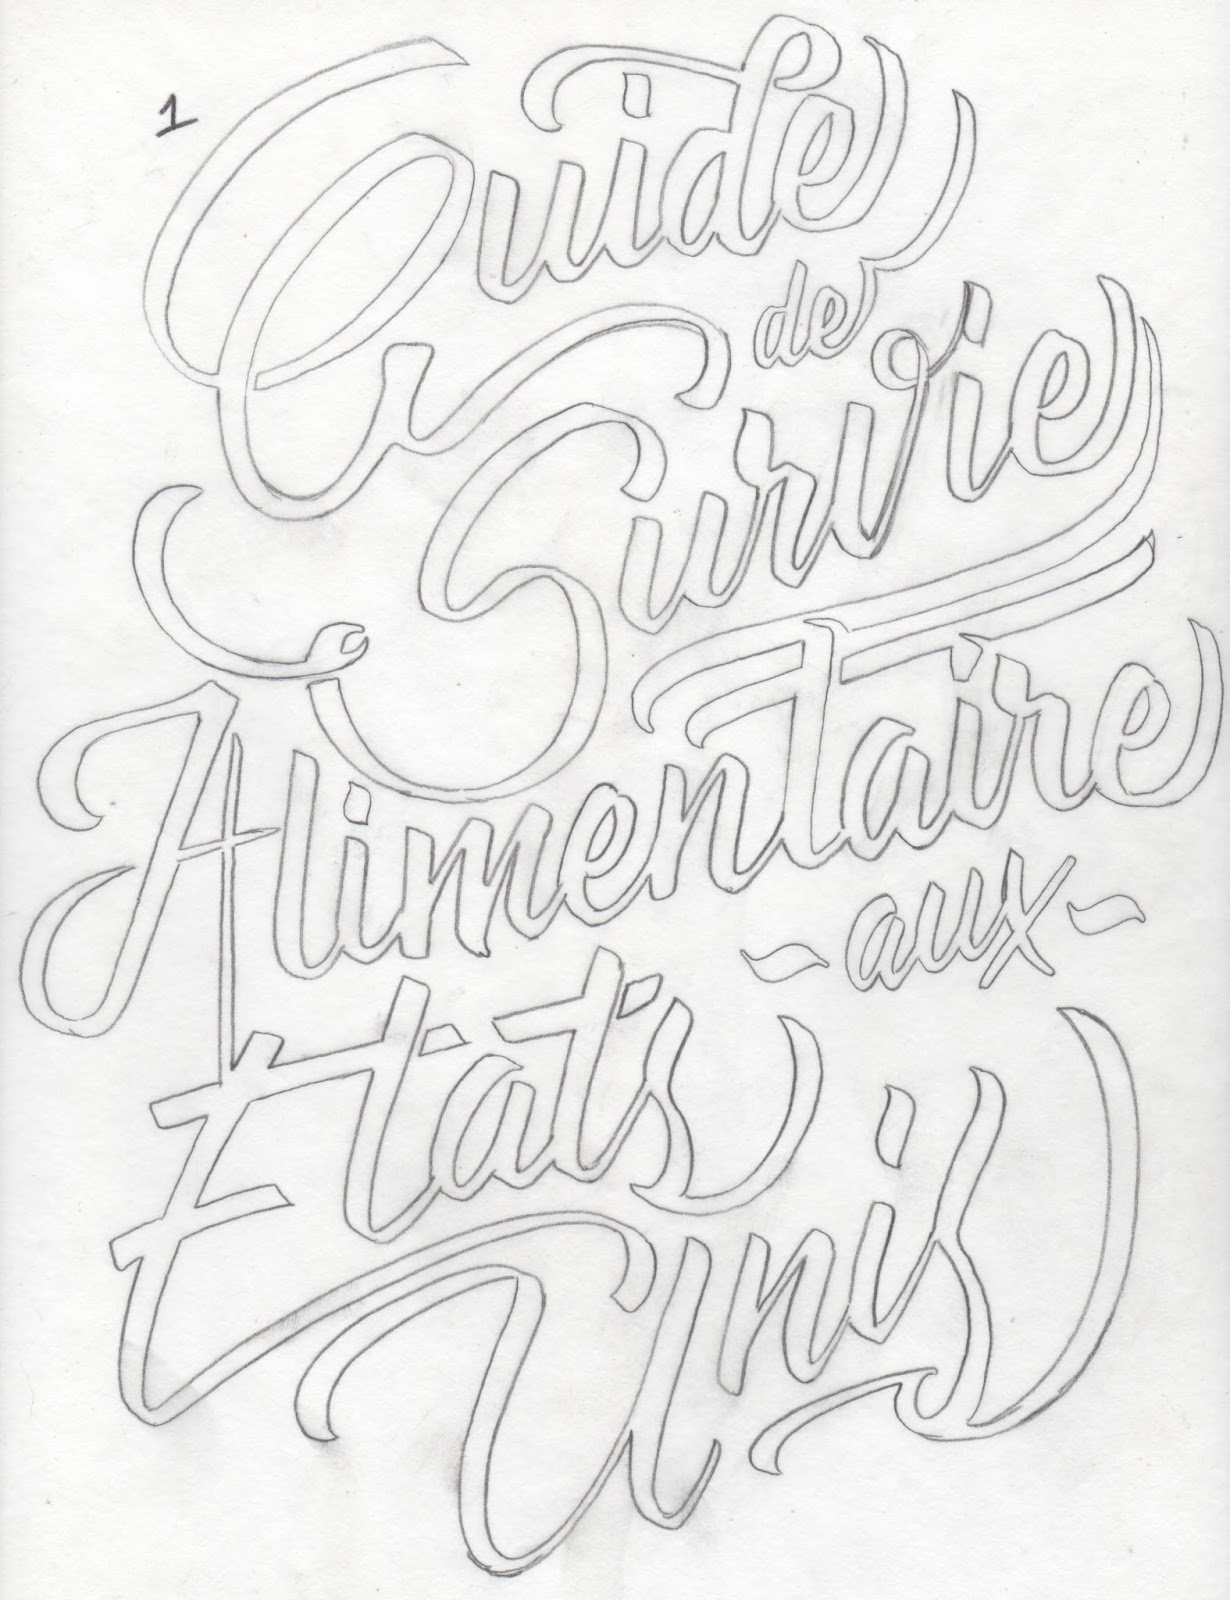 1
Guide
de
Survie
Alimentaire
-aux-
Etats
Unis